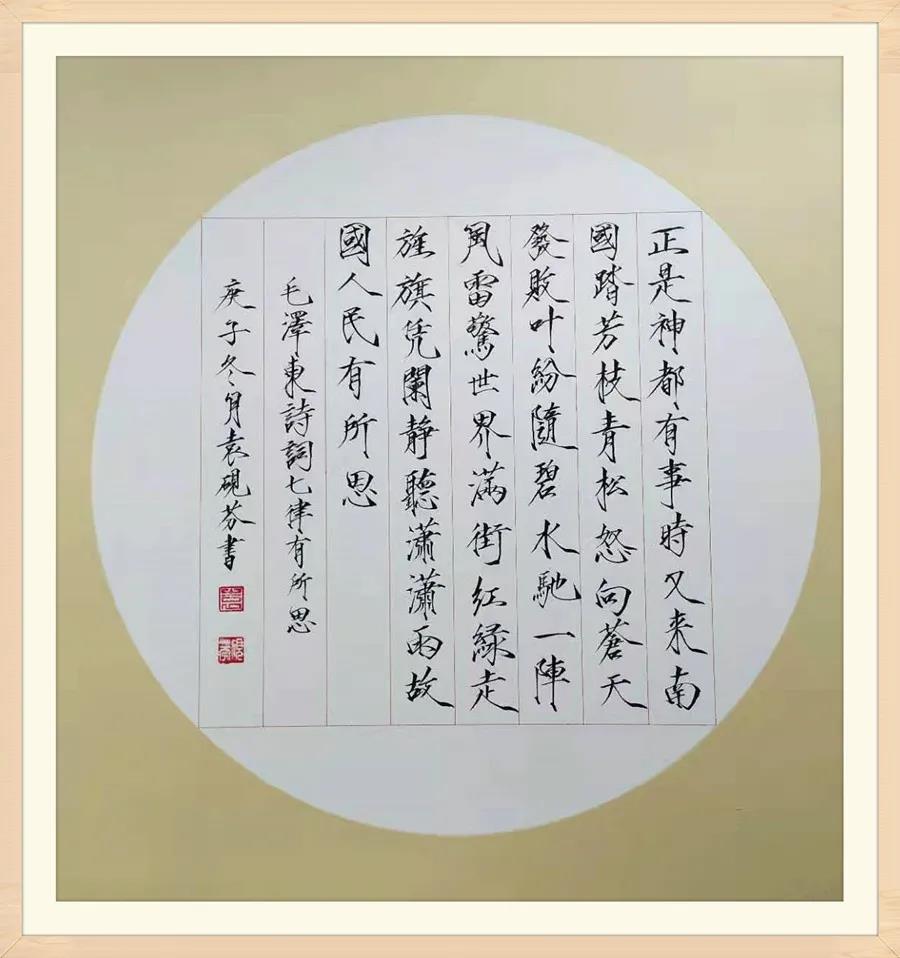 正是神都有事時又来南
國踏芳枝青松怒向蒼天
發敗叶紛隨碧水馳一陣
風雷驚世界滿街紅緑走
旌旗凭闌静聽瀟瀟雨故
國人民有所思
毛澤東詩詞七律有所思
庚子冬月袁硯芬書